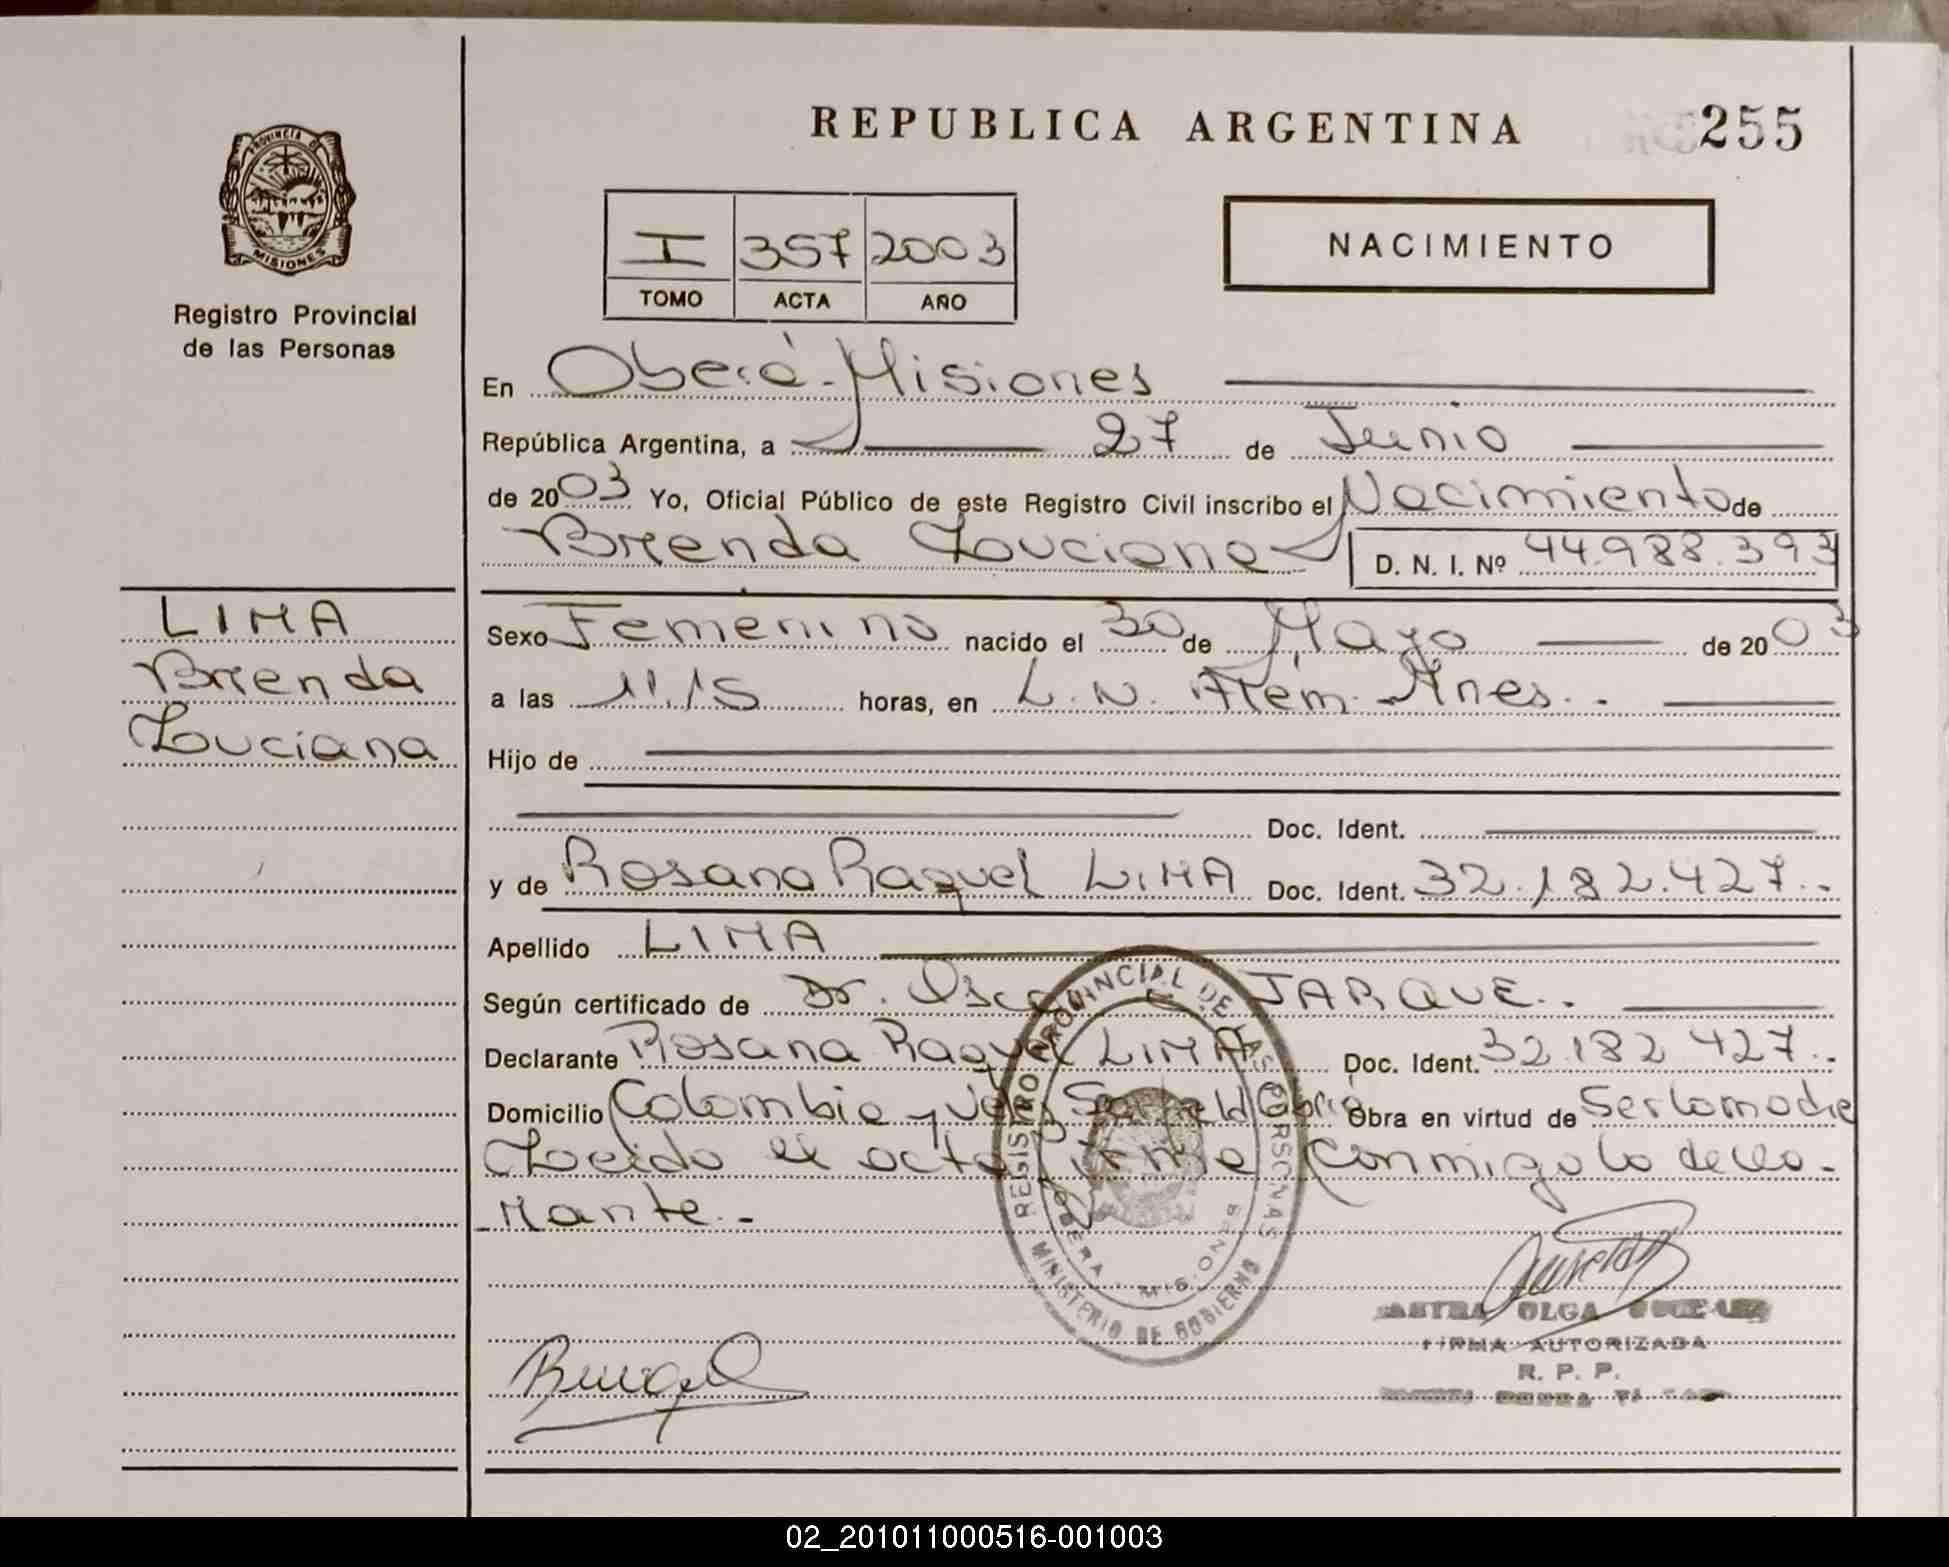 REPUBLICA ARGENTINA
255
PROVINCIA DE
MISIONES
Registro Provincial
de las Personas
I 357 2003
TOMO ACTA AÑO
NACIMIENTO
En Oberá - Misiones
República Argentina, a 27 de Junio
de 2003 Yo, Oficial Público de este Registro Civil inscribo el Nacimiento de
Brenda Louciana D. N. I. Nº 44.988.393
LIMA
Brenda
Louciana
Sexo Femenino nacido el 30 de Mayo de 2003
a las 11.15 horas, en L. N. Alem. Mnes.
Hijo de
Doc. Ident.
y de Rosana Raquel LIMA Doc. Ident. 32.182.427..
Apellido LIMA
Según certificado de Dr. JARQUE..
Declarante Rosana Raquel LIMA Doc. Ident. 32.182.427..
Domicilio Colombia y Velez Sarsfield Obra en virtud de Ser la madre
Loeida el acta firma conmigo la decla-
rante.-
REGISTRO PROVINCIAL DE LAS PERSONAS
OBERA - MISIONES
MINISTERIO DE GOBIERNO
OLGA
FIRMA AUTORIZADA
R. P. P.
02_201011000516-001003